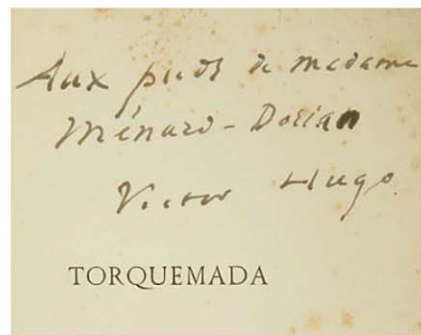 Aux pieds de madame
Ménard-Dorian
Victor Hugo.
TORQUEMADA